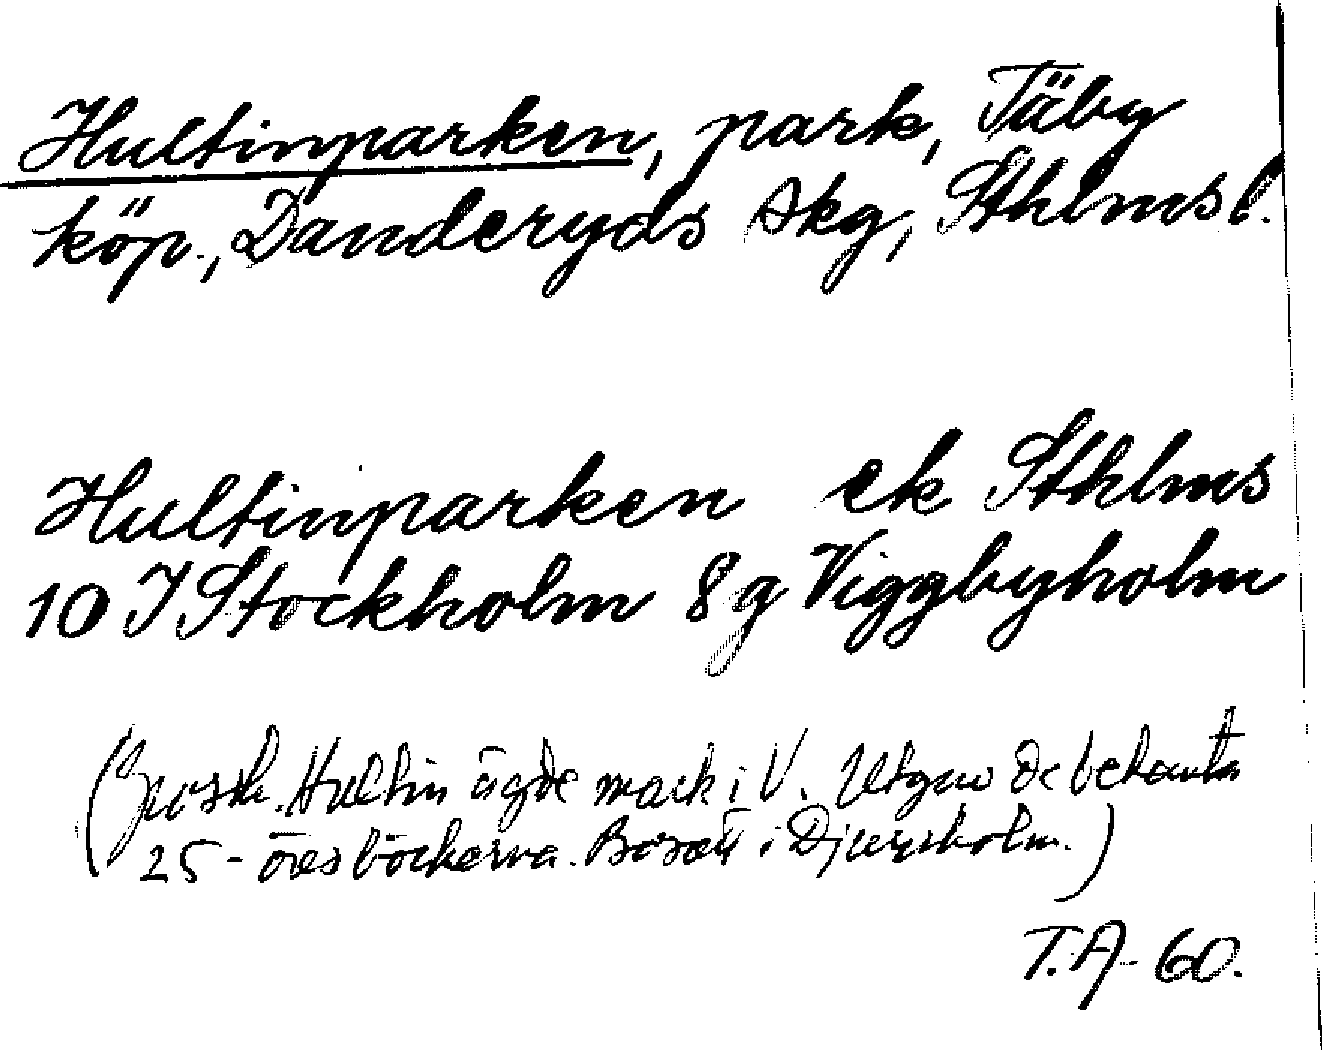 Hultinparken, park, Täby
köp., Danderyds skg, Sthlms l.
Hultinparken ek Sthlms
10 I Stockholm 8g Viggbyholm
(Grossh. Hultin ägde mark i V. Utgav de bekanta
25-öresböckerna. Bosatt i Djursholm.)
T.A. 60.